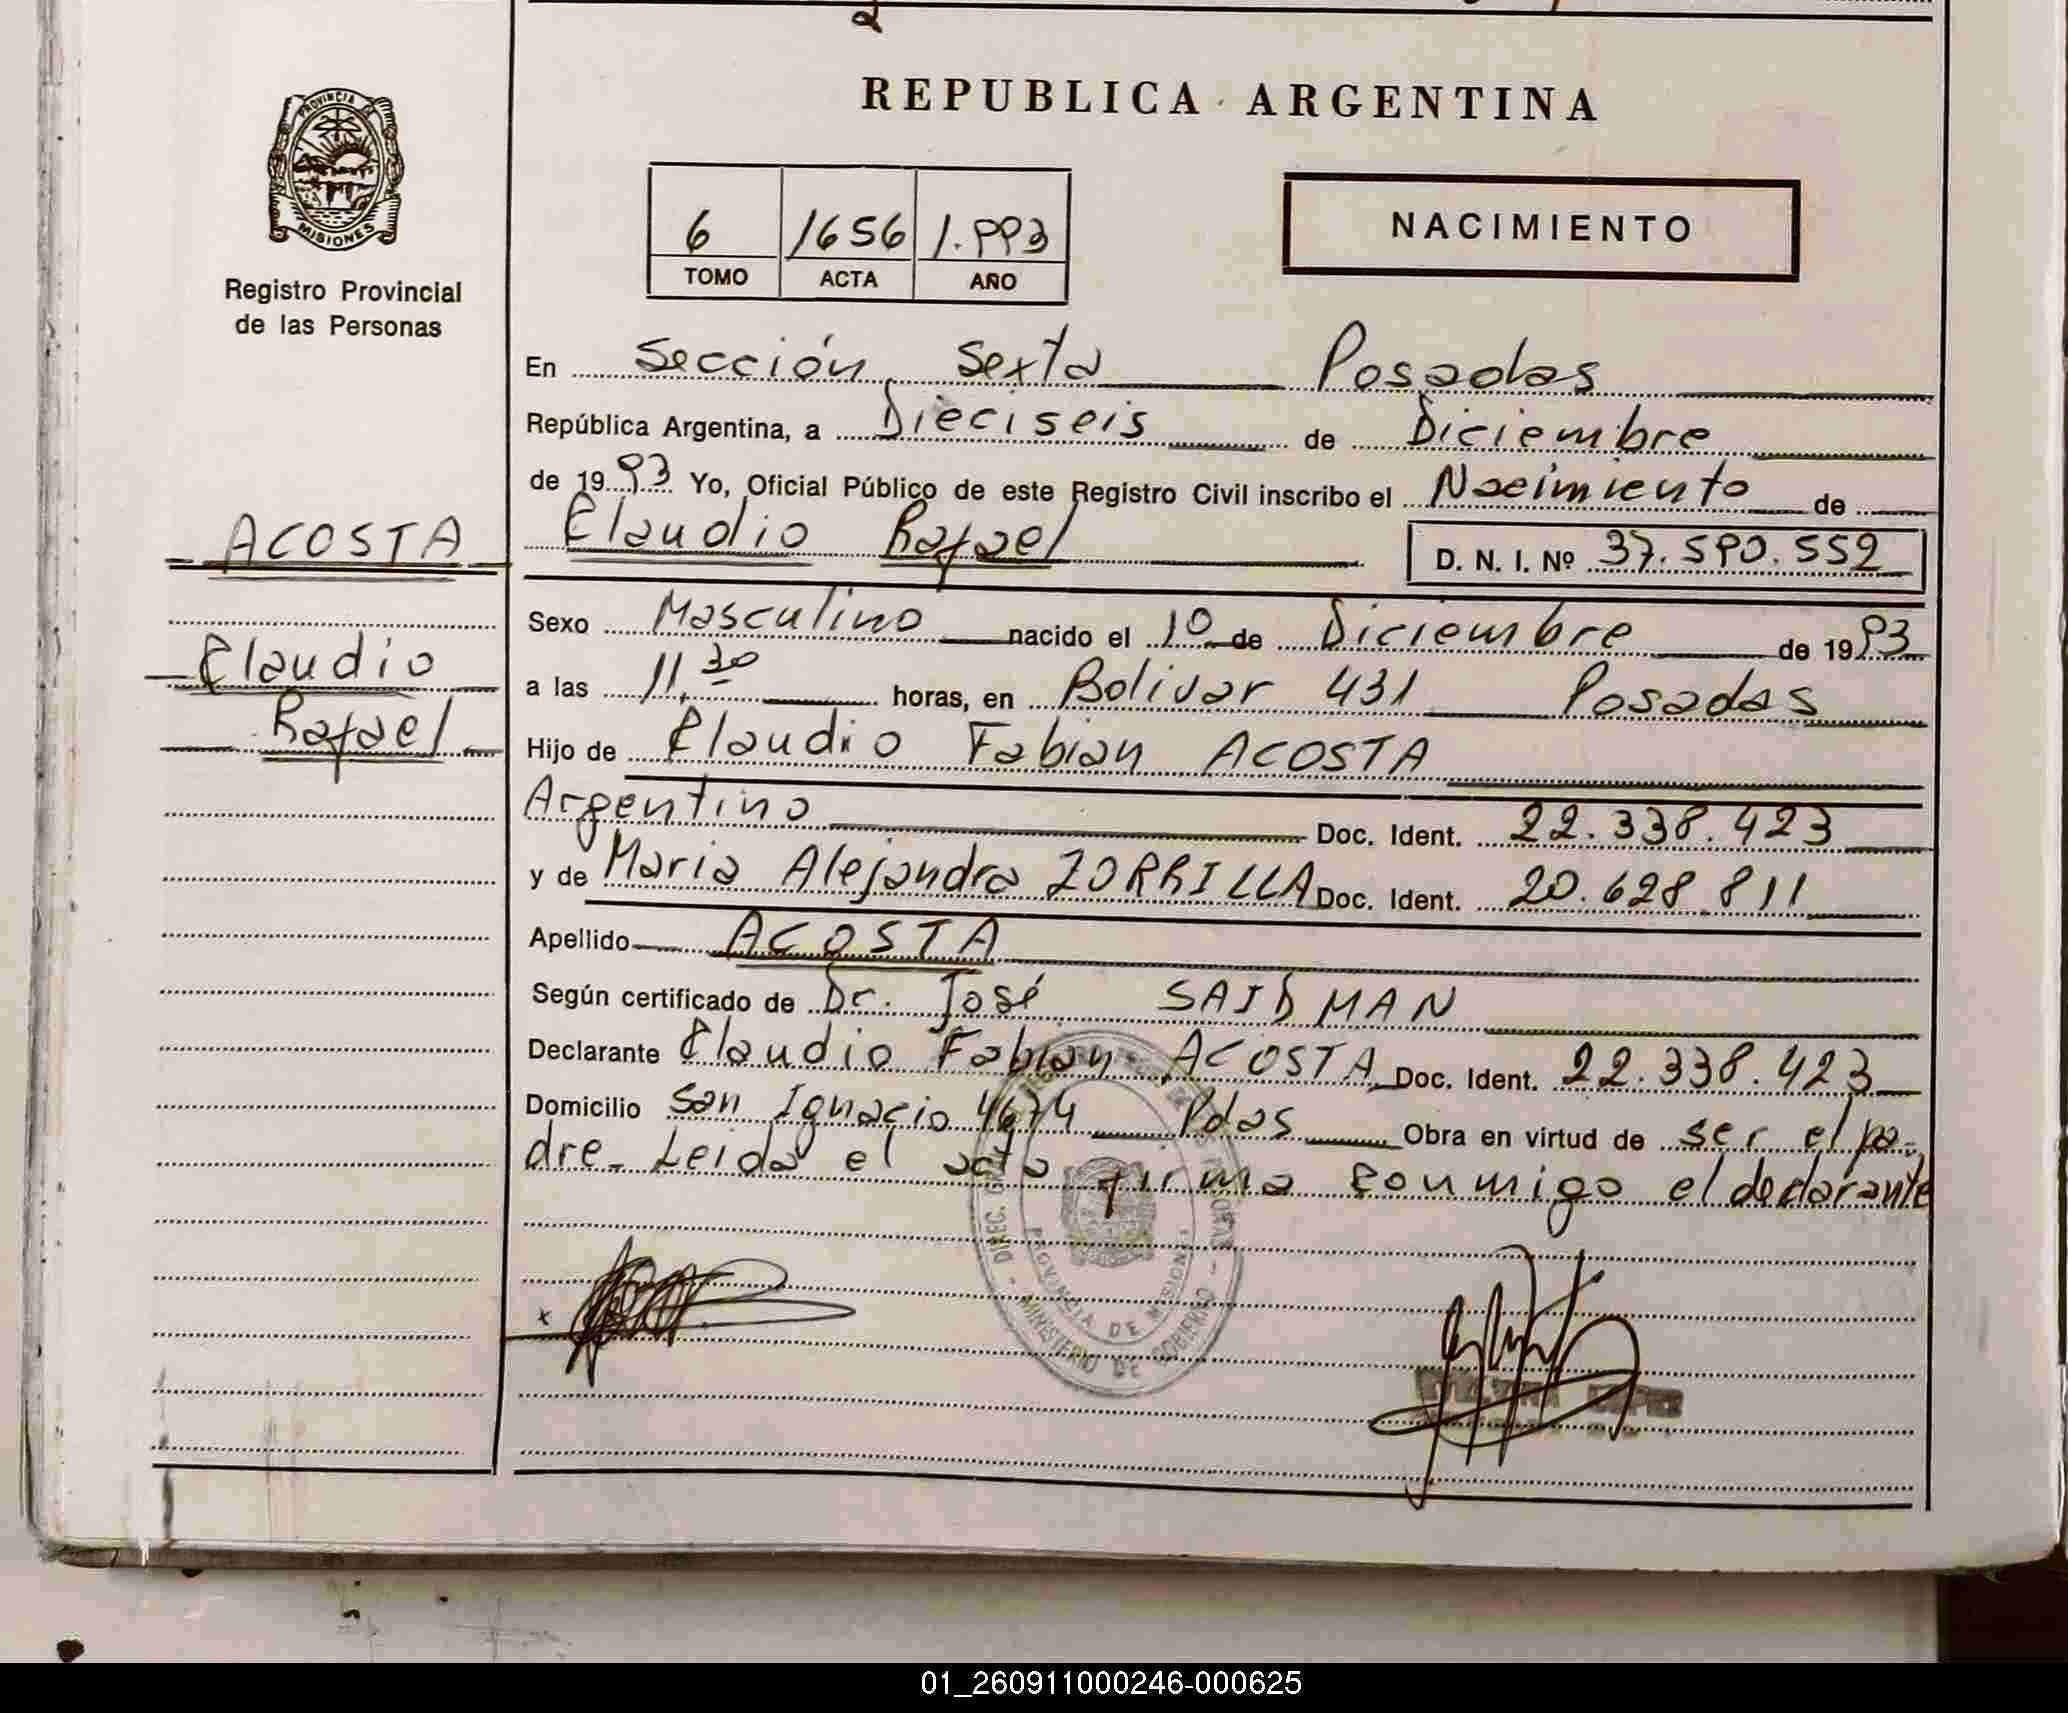 REPUBLICA ARGENTINA
PROVINCIA DE
MISIONES
Registro Provincial
de las Personas
6 1656 1.993
TOMO ACTA AÑO
NACIMIENTO
En Sección Sexta Posadas
República Argentina, a Dieciseis de Diciembre
de 1993 Yo, Oficial Público de este Registro Civil inscribo el Nacimiento de
ACOSTA
Claudio Rafael D. N. I. Nº 37.590.552
Claudio
Rafael
Sexo Masculino nacido el 10 de Diciembre de 1993
a las 11,30 horas, en Bolivar 431 Posadas
Hijo de Claudio Fabian ACOSTA
Argentino Doc. Ident. 22.338.423
y de Maria Alejandra ZORRILLA Doc. Ident. 20.628.811
Apellido ACOSTA
Según certificado de Dr. José SAIDMAN
Declarante Claudio Fabian ACOSTA Doc. Ident. 22.338.423
Domicilio San Ignacio 4674 Pdas Obra en virtud de ser el pa-
dre. Leida el acta firma conmigo el declarante
PROVINCIA DE MISIONES
MINISTERIO DE GOBIERNO
01_260911000246-000625